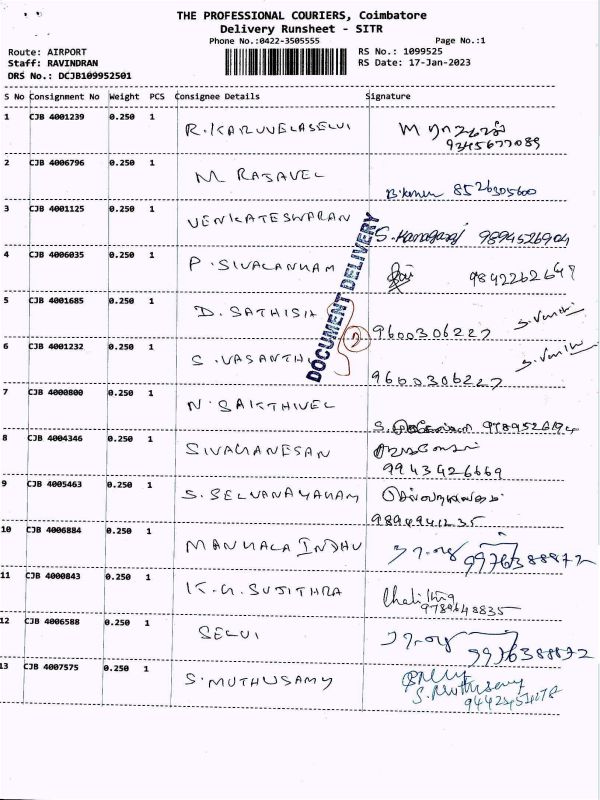 THE PROFESSIONAL COURIERS, Coimbatore
Delivery Runsheet - SITR
Phone No.:0422-3505555 Page No.:1
Route: AIRPORT RS No.: 1099525
Staff: RAVINDRAN RS Date: 17-Jan-2023
DRS No.: DCJB109952501
S No Consignment No Weight PCS Consignee Details Signature
1 CJB 4001239 0.250 1 R.KARUVELASELVI
9245677089
2 CJB 4006796 0.250 1 M RAJAVEL 8526305600
3 CJB 4001125 0.250 1 VENKATESWARAN S.Kanagaraj 9894526904
4 CJB 4006035 0.250 1 P.SIVALANHAM 9842262647
DOCUMENT DELIVERY
2
5 CJB 4001685 0.250 1 D.SATHISH 9600306227
6 CJB 4001232 0.250 1 S.VASANTH 9600306227
7 CJB 4000800 0.250 1 N.SAKTHIVEL
8 CJB 4004346 0.250 1 SIVAHANESAN
9943426669
9 CJB 4005463 0.250 1 S.SELVANAYAHAM
9894941235
10 CJB 4006884 0.250 1 MANHALA INDHU 9976388872
11 CJB 4000843 0.250 1 K.G.SUJITHRA
9789648835
12 CJB 4006588 0.250 1 SELVI 9976388872
13 CJB 4007575 0.250 1 S.MUTHUSAMY
S.Muthusamy